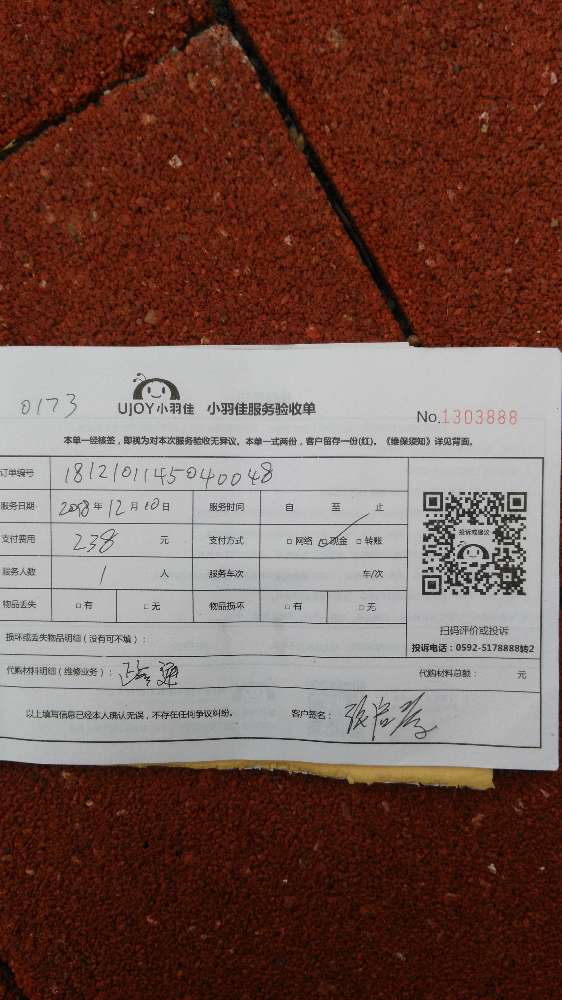 0173 UJOY小羽佳 小羽佳服务验收单 No.1303888
本单一经核签，即视为对本次服务验收无异议。本单一式两份，客户留存一份(红)。《维保须知》详见背面。
订单编号 1812101145040048
服务日期 2018年12月10日 服务时间 自 至 止
支付费用 238 元 支付方式 □网络 □现金 □转账
服务人数 1 人 服务车次 车/次
物品丢失 □有 □无 物品损坏 □有 □无
投诉或建议
扫码评价或投诉
投诉电话：0592-5178888转2
损坏或丢失物品明细（没有可不填）：
代购材料明细（维修业务）： 代购材料总额： 元
以上填写信息已经本人确认无误，不存在任何争议纠纷。 客户签名：